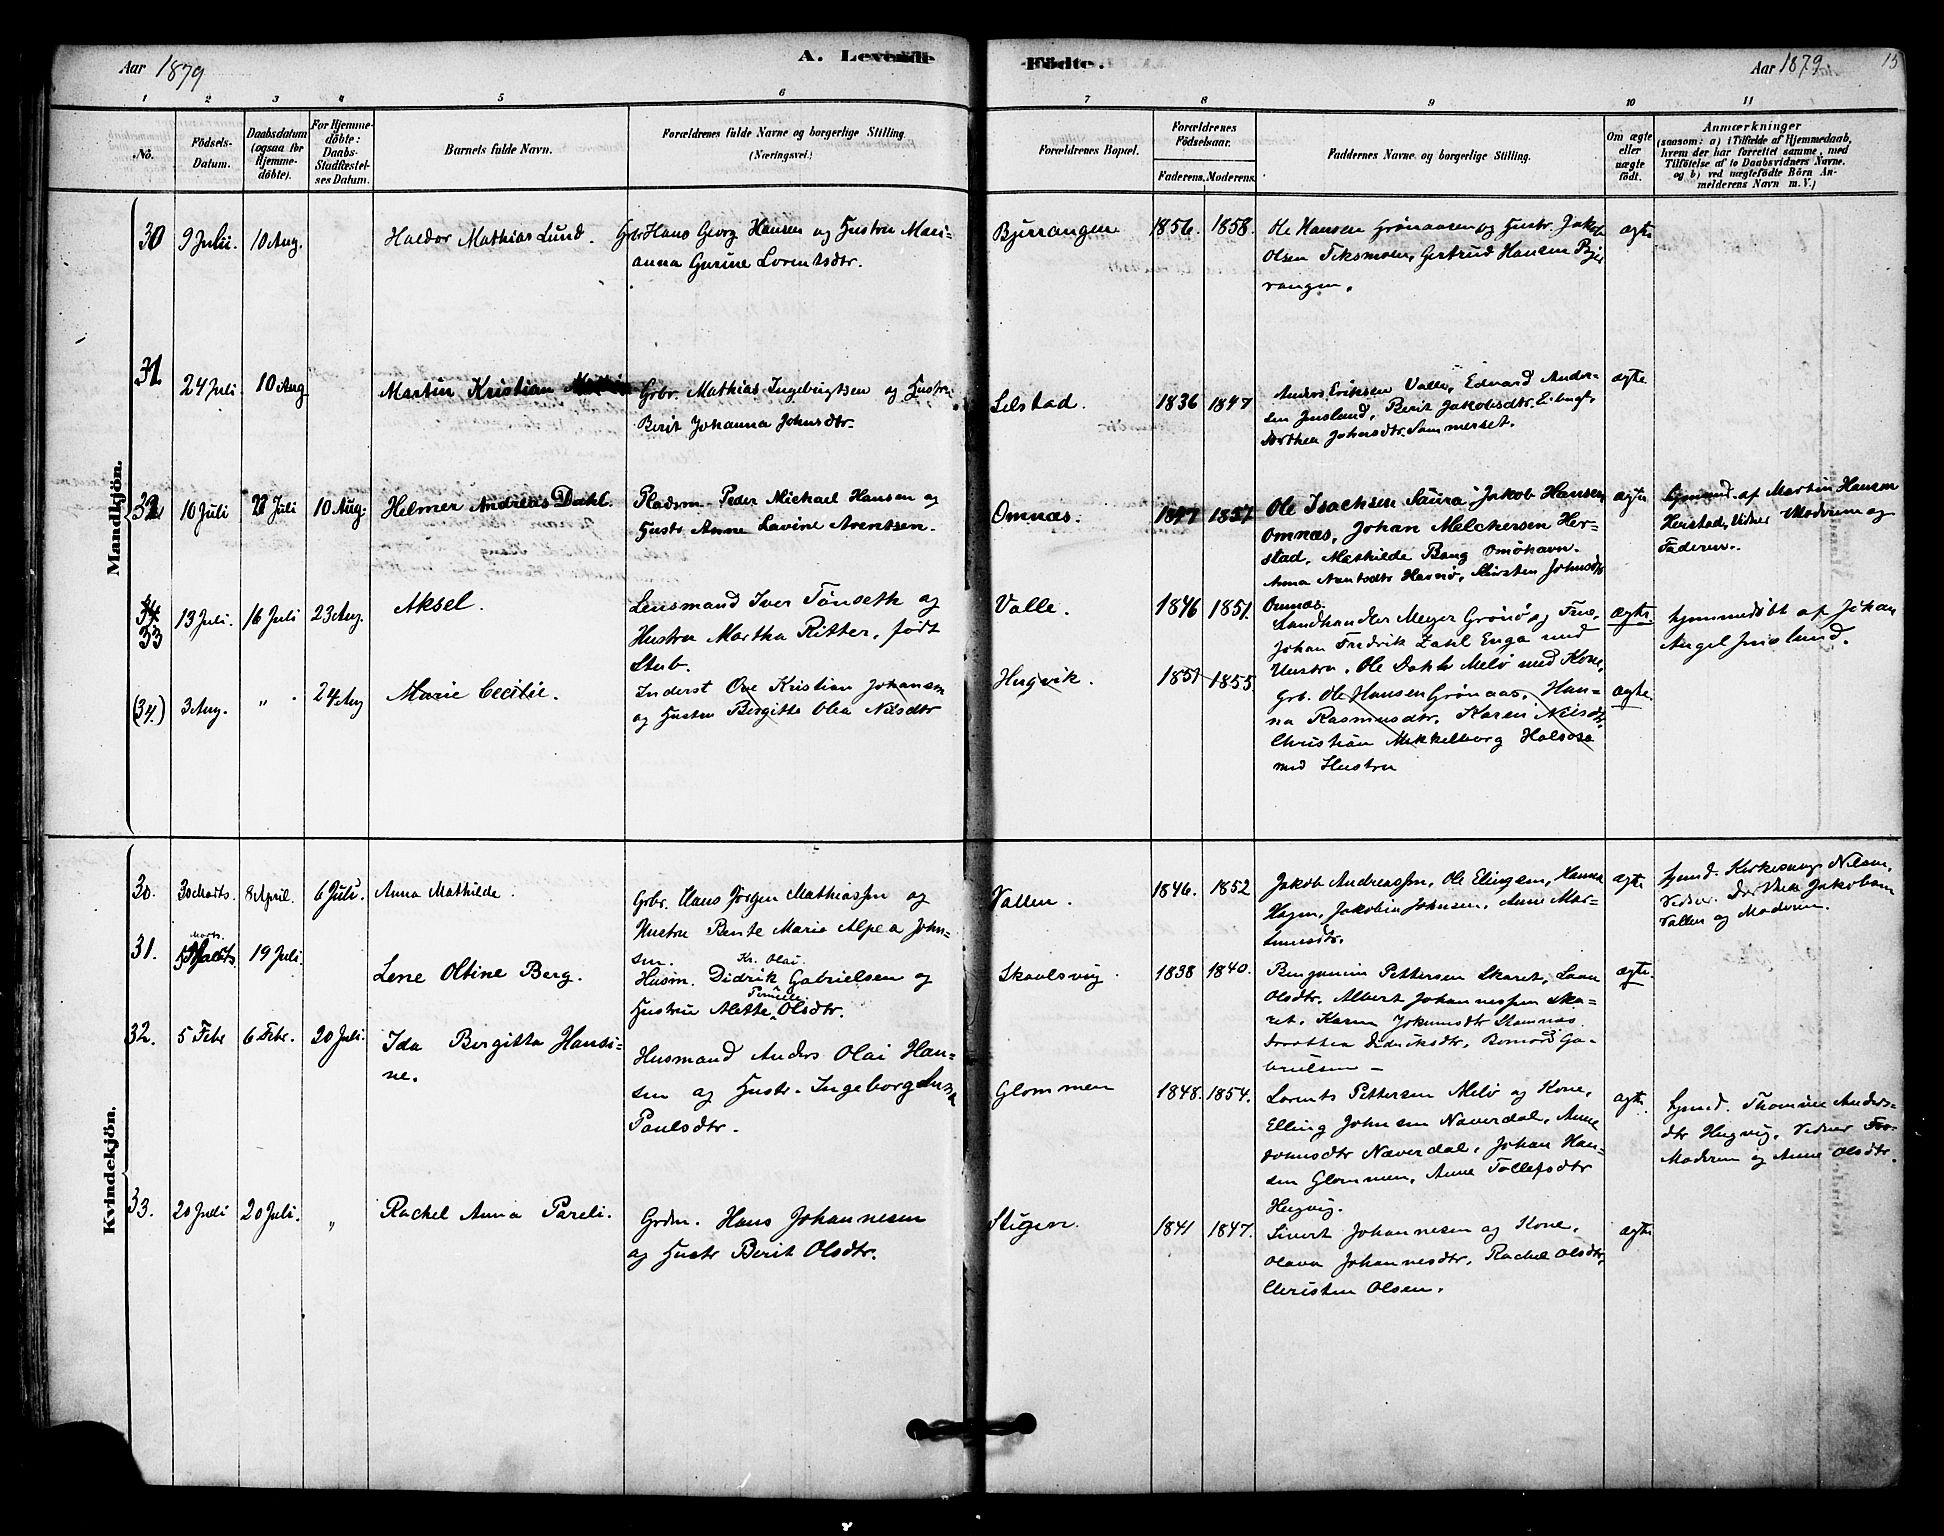 Aar 1879
A. Levende
Födte.
Aar 1879
15
1 2 3 4 5 6 7 8 9 10 11
No.
Födsels-
Datum.
Daabsdatum
(ogsaa for
Hjemme-
döbte).
For Hjemme-
döbte:
Daabs-
Stadfæstel-
ses Datum.
Barnets fulde Navn.
Forældrenes fulde Navne og borgerlige Stilling.
(Næringsvei.)
Forældrenes Bopæl.
Forældrenes
Födselsaar.
Faderens. Moderens.
Faddernes Navne og borgerlige Stilling.
Om ægte
eller
uægte
födt.
Anmærkninger
(saasom: a) i Tilfælde af Hjemmedaab,
hvem der har forrettet samme, med
Tilföielse af to Daabsvidners Navne.
og b) ved uægtefödte Börn An-
melderens Navn m. V.)
Mandkjön.
30 9 Juli. 10 Aug.
Haldor Mathias Lund.
Gbr Hans Georg Hansen og Hustru Mari-
anna Gurine Lorentsdtr.
Bjerrangen
1856. 1858.
Ole Hansen Grönaasen og Hustr. Jakob
Olsen Teksmoen, Gertrud Hansen Bjer
rangen.
ægte
31 24 Juli 10 Aug
Martin Kristian
Grbr. Mathias Ingebrigtsen og Hustru
Berit Johanna Johnsdtr.
Selstad.
1836 1847
Anders Eriksen Valle, Edvard Ander-
sen Jusland, Berit Jakobsdtr.
Dorthea Johnsdtr. Sommerset.
ægte
32 10 Juli Juli 10 Aug.
Helmer Andreas Dahl.
Pladsm. Peder Michael Hansen og
Hustr Anne Lavine Arentsen.
Omnæs.
1847 1851
Ole Isachsen Saura, Jakob Hansen
Omnæs, Johan Melchersen Her-
stad, Mathilde Bang Omöhavn.
Anna Arntsdtr Havnö, Kirsten Johnsdtr
Omnæs.
ægte
hjemmed. af Martin Hansen
Herstad, Vidner Moderen og
Faderen.
34
33 13 Juli. 16 Juli 23 Aug.
Aksel.
Lensmand Iver Tönseth og
Hustru Martha Ritter, födt
Stub.
Valle.
1846 1851.
Landhandler Meyer Grönö og Frue,
Johan Fredrik Zahl Enga med
Hustru, Ole Dahl Melö med Kone,
ægte
hjemmedöbt af Johan
Angel Jusland.
(34.) 3 Aug. " 24 Aug
Marie Cecilie.
Inderst Ove Kristian Johansen
og Hustru Birgitte Olea Nilsdtr
Hugvik.
1851 1855
Grb. Ole Hansen Grönaas, Han-
na Rasmusdtr, Karen Nilsdtr,
Christian Mekkelborg Halsosa
med Hustru
ægte.
Kvindekjön.
30. 30 Marts. 8 April. 6 Juli.
Anna Mathilde.
Grbr. Hans Jörgen Mathiassen og
Hustru Bente Marie Alpea John-
sen.
Vallen.
1846. 1852
Jakob Andreassen, Ole Elingsen, Hanna
Hagen, Jakobine Johnsen, Anne Mor-
tensdtr.
ægte
hjmd. Kirkesanger Nilsen,
Vidner. Dorthea Jakobsen
Vallen og Moderen.
31. 5 Marts. 19 Juli.
Lene Oltine Berg.
Kr. Olai
Husm. Didrik Gabrielsen og
Pernille
Hustru Alette Olsdtr.
Skavlsvig.
1838 1840.
Benjamin Pettersen Skaret, Laura
Olsdtr. Albert Johannessen Ska-
ret, Karen Johannsdtr Stamnæs.
Dorothea Didriksdtr, Ga-
brielsen -
ægte.
32. 5 Febr 6 Febr. 20 Juli.
Ida Bergitta Hansi-
ne.
Husmand Anders Olai Han-
sen og Hustr. Ingeborg Anna
Paulsdtr.
Glommen
1848. 1854.
Lorents Pettersen Melö og Kone,
Elling Johnsen Naverdal, Anne
Johnsdtr Næverdal, Johan Han-
sen Glommen, Anne Tollefsdtr
Hugvig.
ægte.
hjmd. Thomine Anders-
dtr Hugvig, Vidner
Moderen og Anne Olsdtr.
33. 20 Juli 20 Juli. "
Rachel Anna Pareli.
Grdm. Hans Johannesen
og Hustr Berit Olsdtr.
Stigen.
1841 1847.
Sivert Johannesen og Kone,
Olava Johannesdtr, Rachel Olsdtr,
Christen Olsen.
ægte